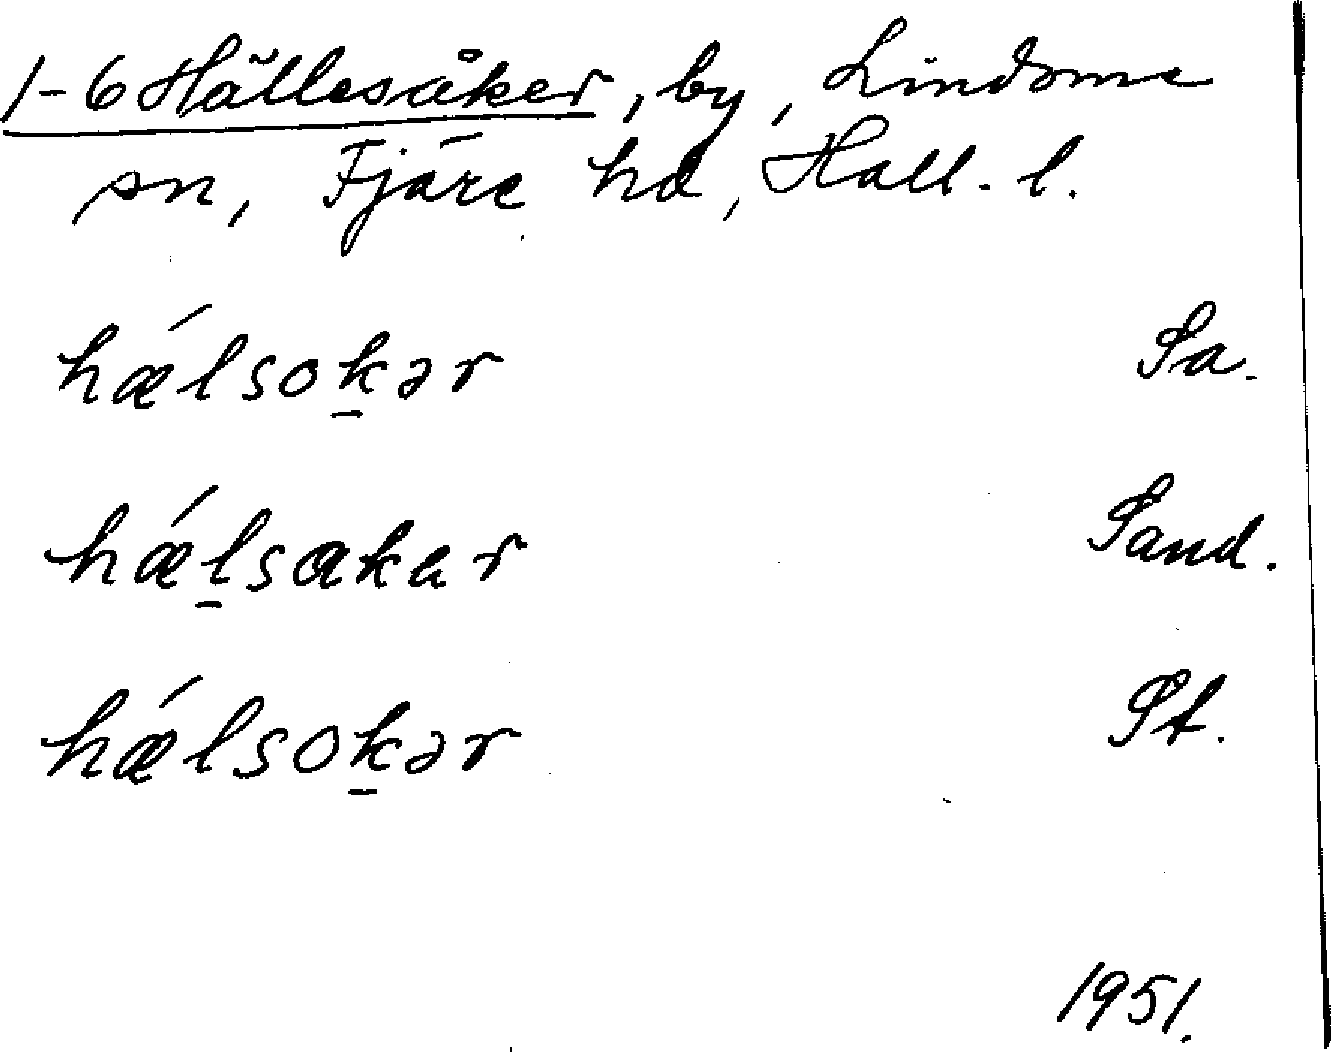 1-6 Hällesåker, by, Lindome
sn, Fjäre hd, Hall. l.
hǽlsoḵər Sa.
hǽḻsakar Sand.
hǽlsoḵər St.
1951.